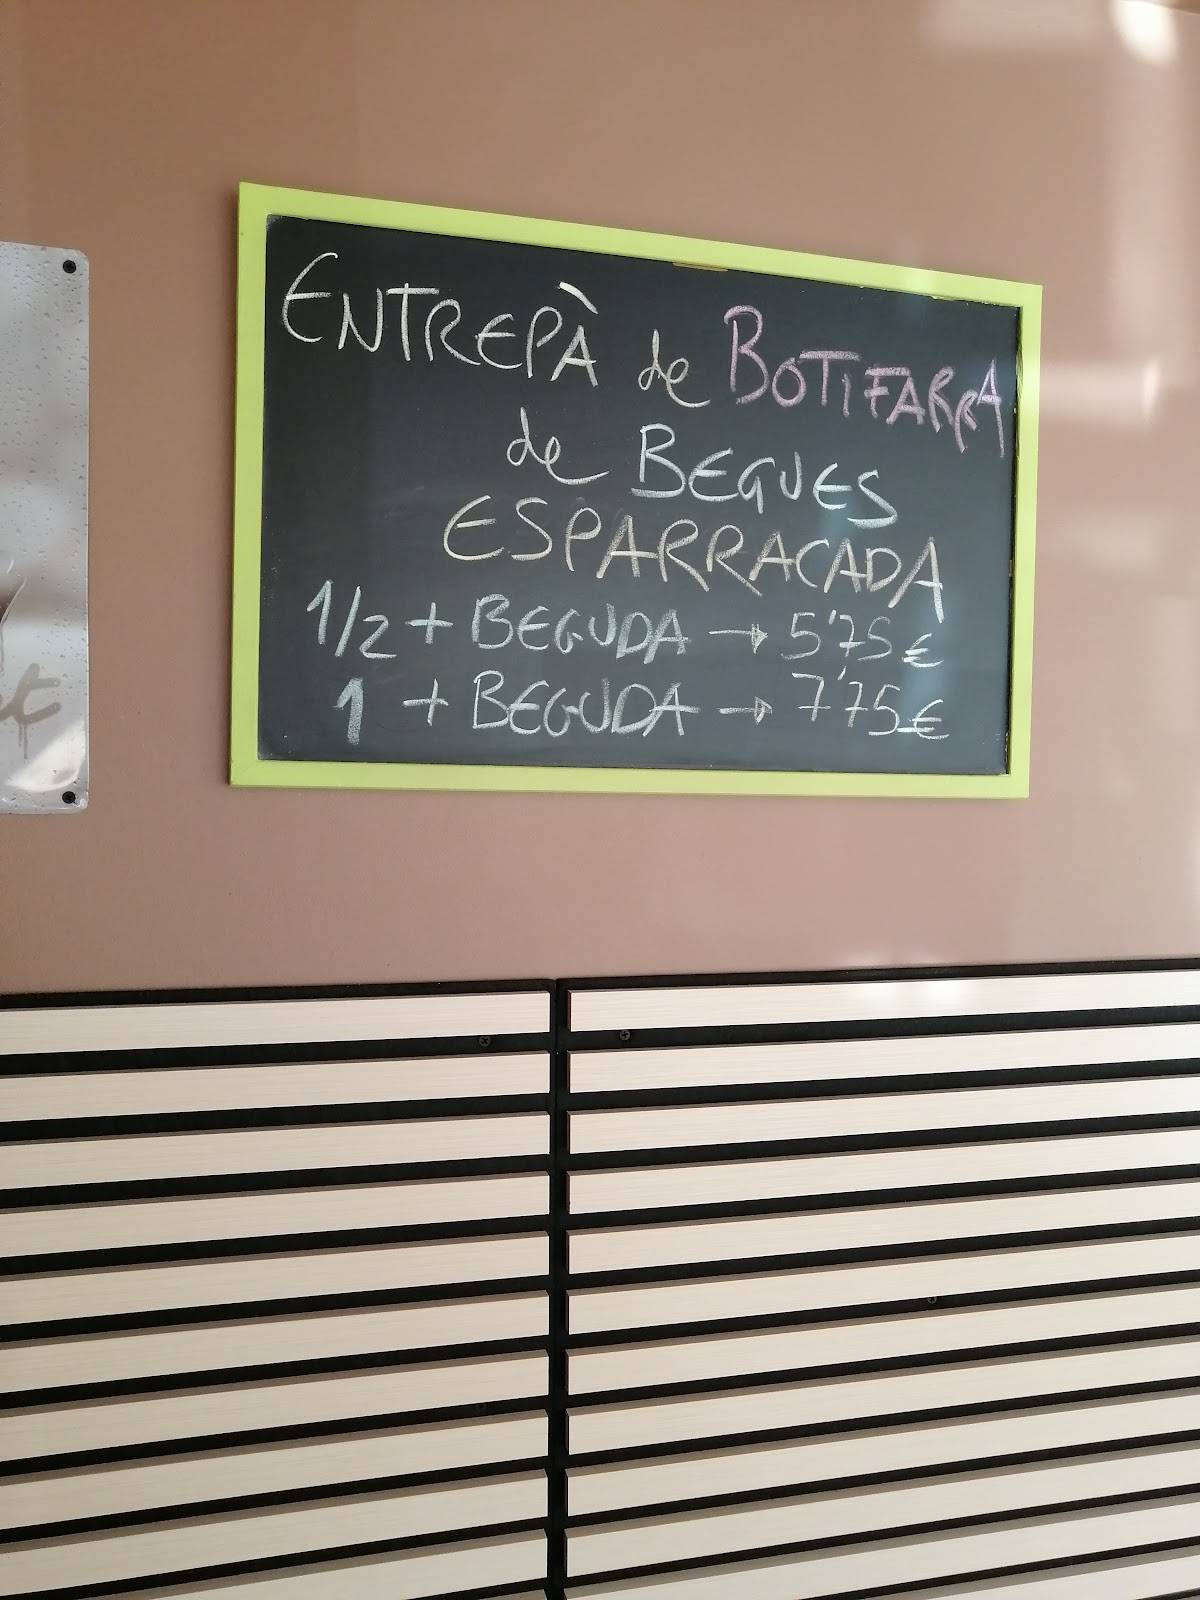 ENTREPÀ de BOTIFARRA
de BEGUES
ESPARRACADA
1/2 + BEGUDA → 5'75€
1 + BEGUDA → 7'75€
et